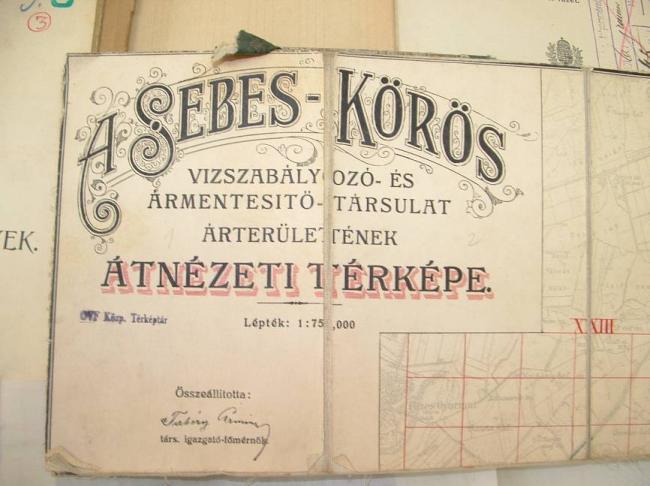 3
A SEBES-KÖRÖS
VIZSZABÁLYOZÓ- ÉS
ÁRMENTESITŐ-TÁRSULAT
YEK.
ÁRTERÜLETÉNEK
1
2
ÁTNÉZETI TÉRKÉPE.
OVF Közp. Térképtár
Lépték: 1:75,000
XXIII
Összeállitotta:
társ. igazgató-főmérnök.